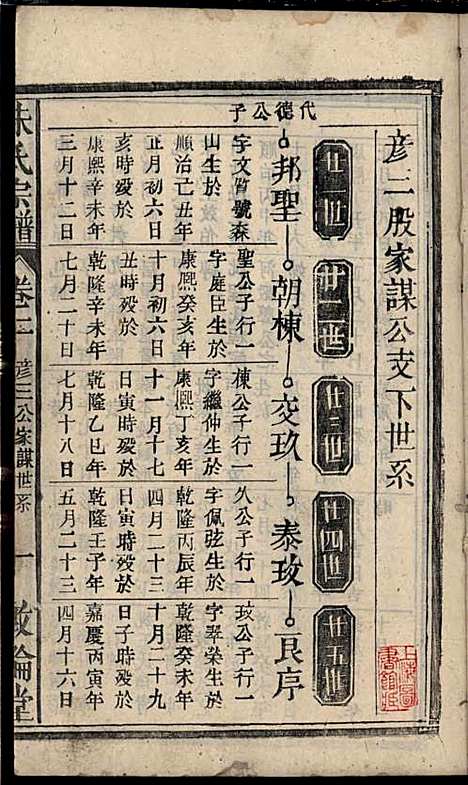 彦三股家謀公支下世系
廿一世
廿二世
廿三世
廿四世
廿五世
代德公子
邦聖
朝棟
交玖
泰玫
艮序
字文質號森
山生於
順治己丑年
正月初六日
亥時殁於
康熙辛未年
三月十二日
聖公子行一
字庭臣生於
康熙癸亥年
十月初六日
丑時殁於
乾隆辛未年
七月二十日
棟公子行一
字繼仲生於
康熙丁亥年
十一月十七
日寅時殁於
乾隆乙巳年
七月十八日
久公子行一
字佩弦生於
乾隆丙辰年
四月二十三
日寅時殁於
乾隆壬子年
五月二十三
玫公子行一
字翠榮生於
乾隆癸未年
十月二十九
日子時殁於
嘉慶丙寅年
四月十六日
朱氏宗譜
卷二
彦三公家謀世系
一
敦倫堂
上海圖書館藏